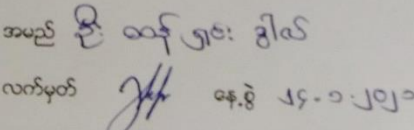 အမည် ဦး ဆန် ရှင်း ခွါလ်
လက်မှတ် နေ့စွဲ ၂၄-၁-၂၀၂၁